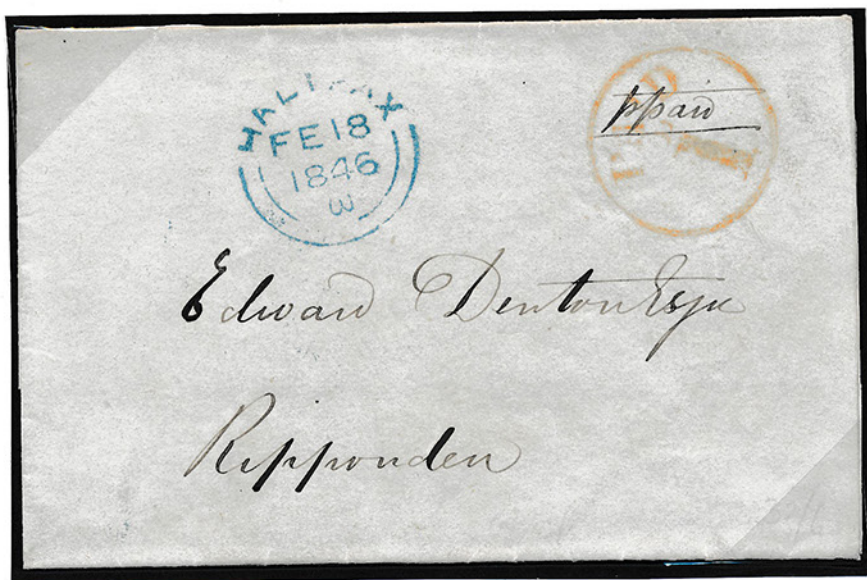 HALIFAX
FE 18
1846
3
PAID
ppaid
1
Edward Denton Esqe
Ripponden